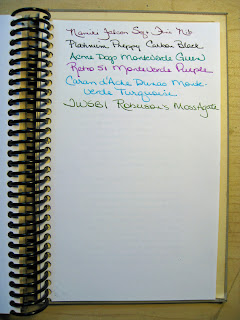 Namiki Falcon Sg. Fine Nib
Platinum Preppy Carbon Black
Acme Dogs MonteVerde Green
Retro 51 MonteVerde Purple
Caran d'Ache Dunas Monte
verde Turquoise
JW5BI Robinson's MossAgate